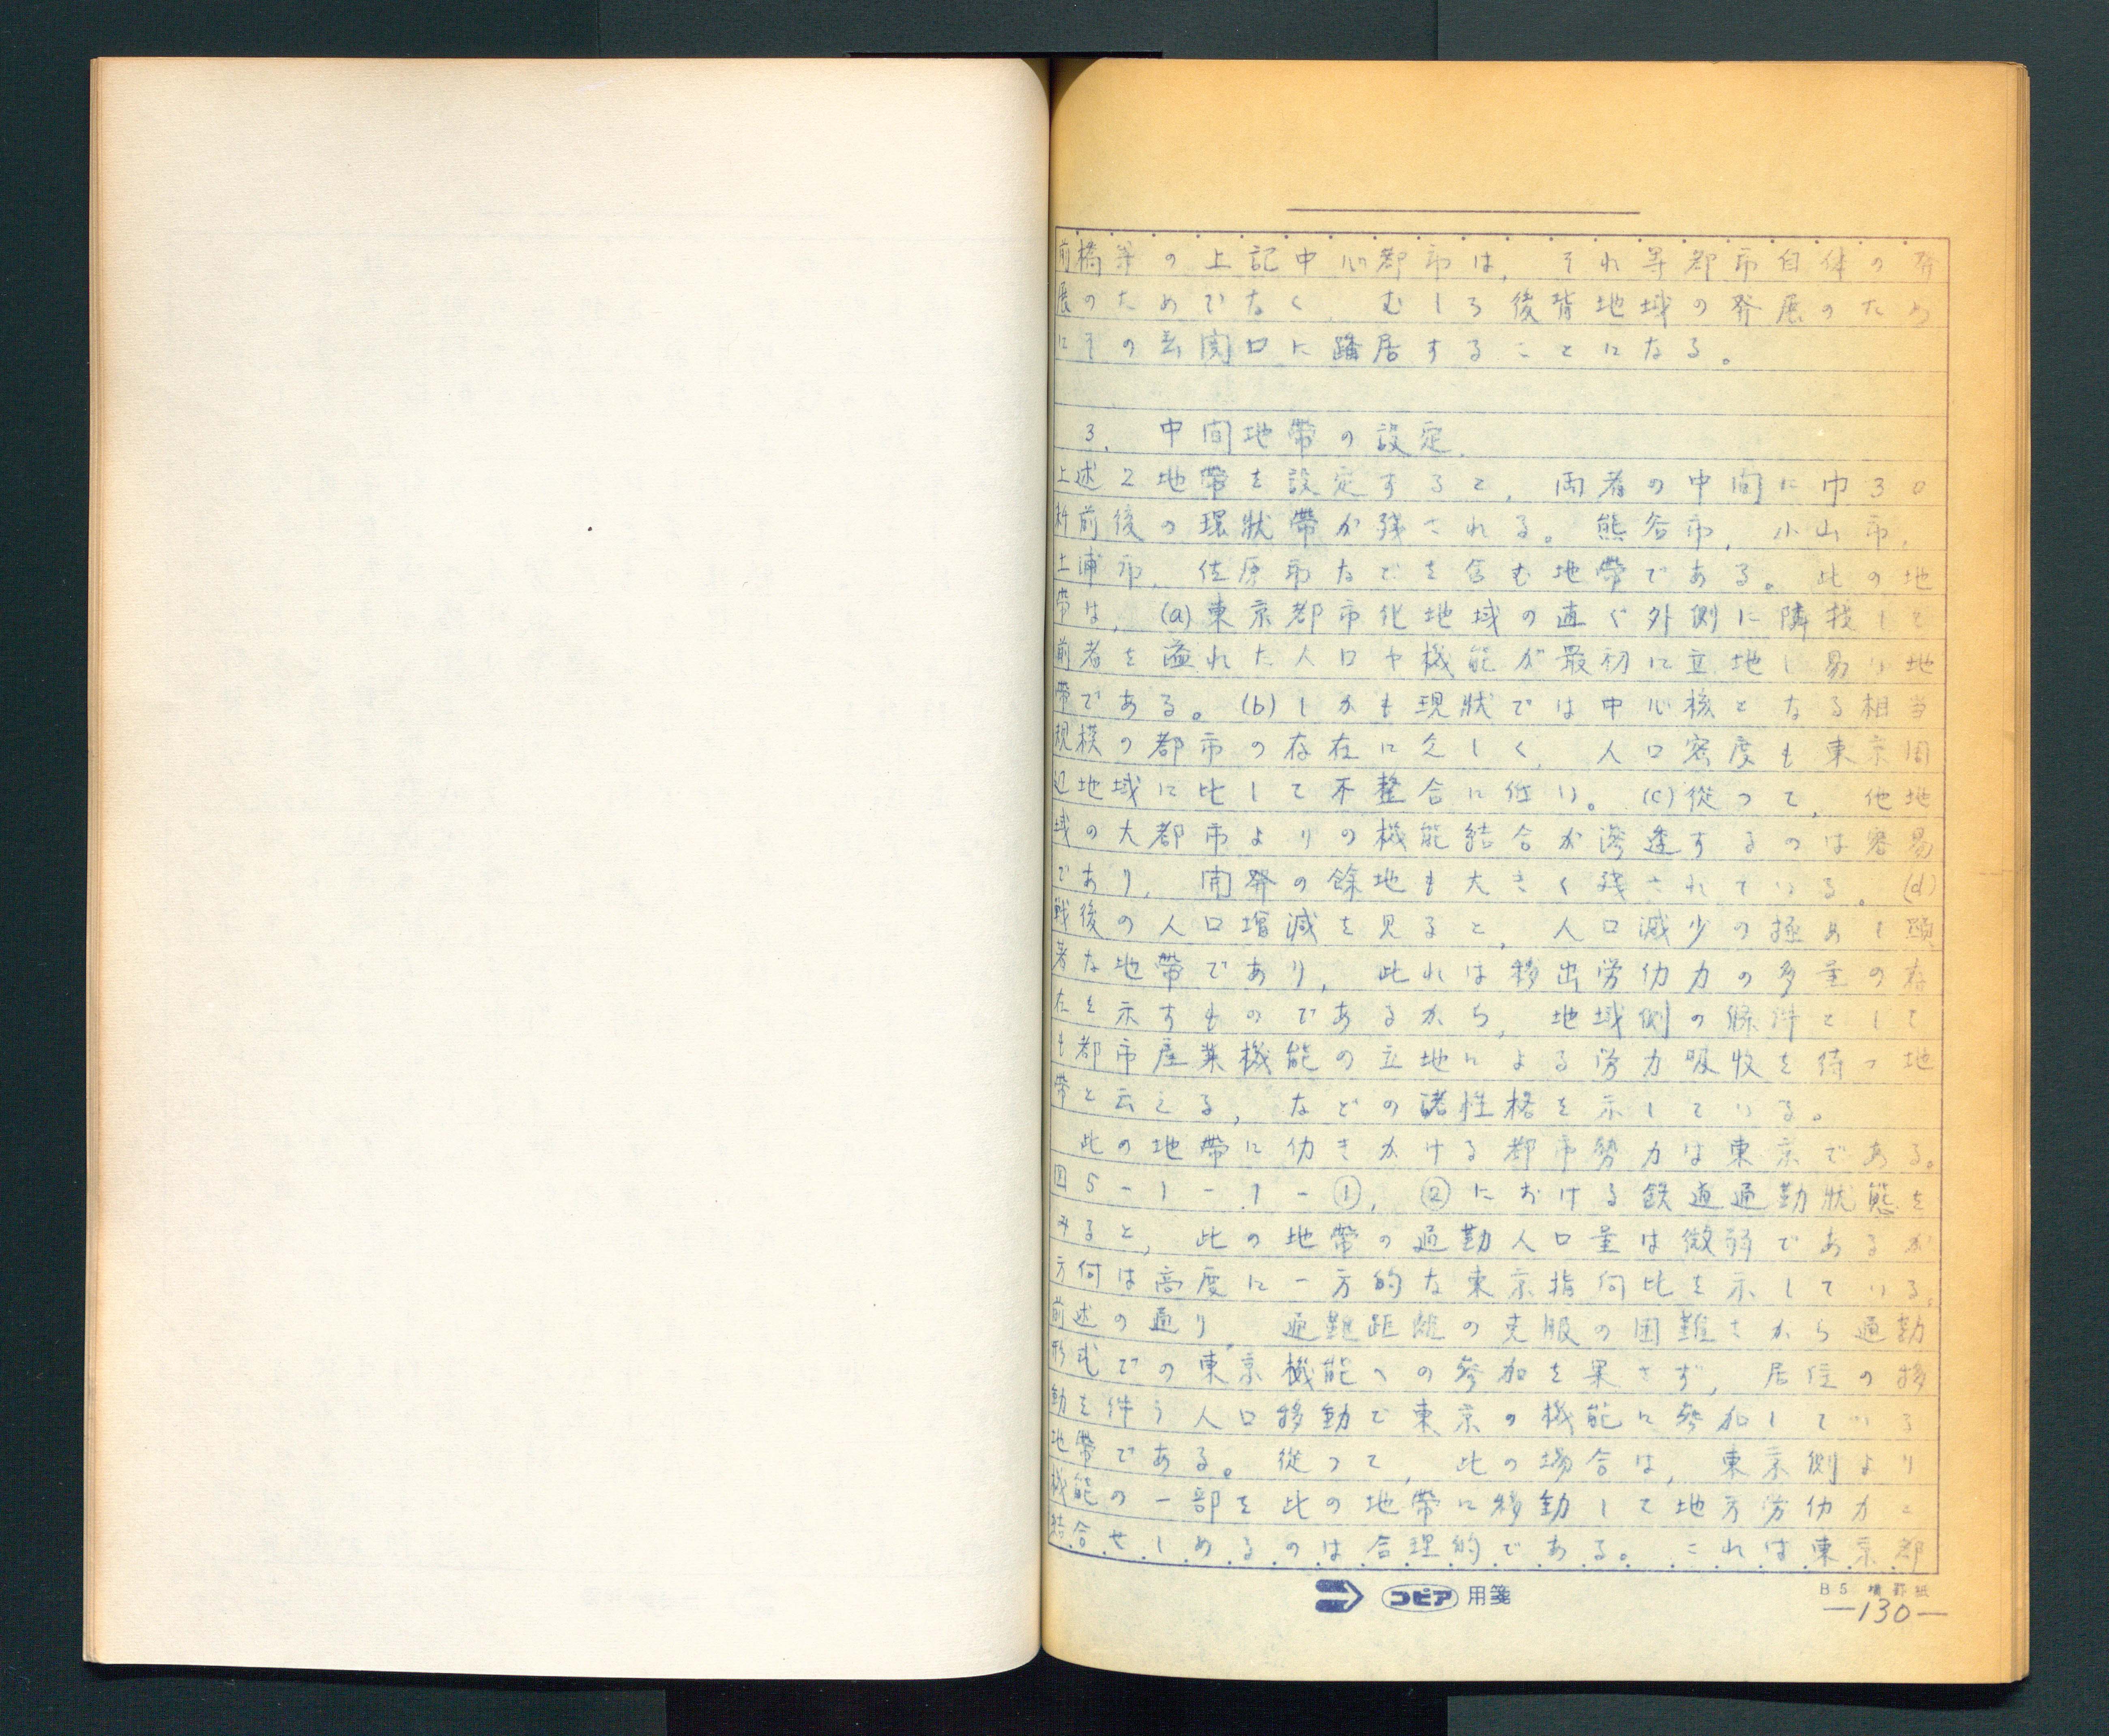 前橋等の上記中心都市は，それ等都市自体の発
展のためでなく，むしろ後背地域の発展のため
にその玄関口に蹯居することになる。
3．中間地帶の設定．
上述2地帶を設定すると，両者の中間に巾30
粁前後の環狀帶が残される。熊谷市，小山市，
土浦市，佐原市などを含む地帶である。此の地
帶は，(a)東京都市化地域の直ぐ外側に隣接して
前者を溢れた人口や機能が最初に立地し易い地
帶である。(b)しかも現狀では中心核となる相当
規模の都市の存在に乏しく，人口密度も東京周
辺地域に比して不整合に低い。(c)從つて，他地
域の大都市よりの機能結合が滲透するのは容易
であり，開発の餘地も大きく残されている。(d)
戦後の人口増減を見ると，人口減少の極めて顕
著な地帶であり，此れは移出労仂力の多量の存
在を示すものであるから，地域側の條件として
も都市産業機能の立地による労力吸收を待つ地
帶と云える，などの諸性格を示している。
此の地帶に仂きかける都市勢力は東京である。
図5-1-1-①，②における鉄道通勤狀態を
みると，此の地帶の通勤人口量は微弱であるが
方向は高度に一方的な東京指向比を示している。
前述の通り，通難距離の克服の困難さから通勤
形式での東京機能への参加を果さず，居住の移
動を伴う人口移動で東京の機能に参加している
地帶である。從つて，此の場合は，東京側より
機能の一部を此の地帶に移動して地方労仂力と
結合せしめるのは合理的である。これは東京都
コピア用箋
B5 横罫紙
—130—